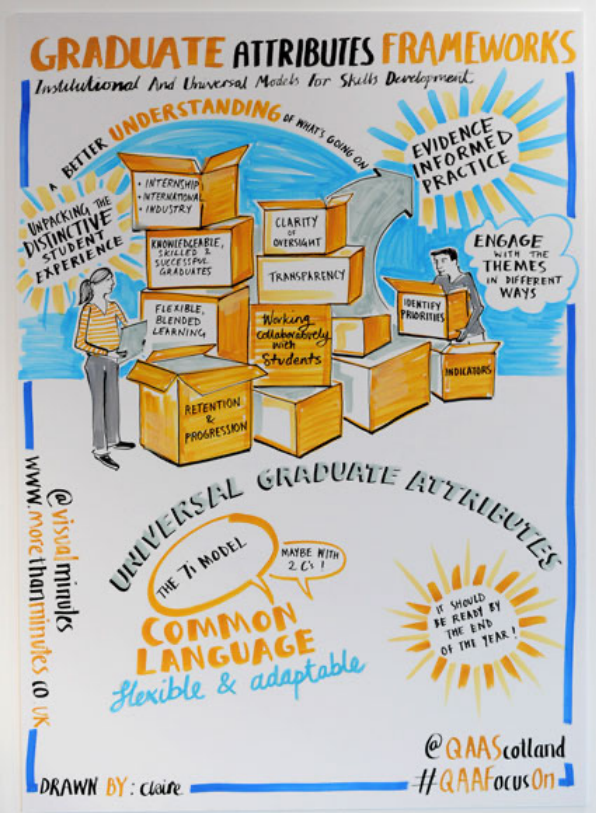 GRADUATE ATTRIBUTES FRAMEWORKS
Institutional And Universal Models for Skills Development
A BETTER UNDERSTANDING OF WHAT'S GOING ON
EVIDENCE
INFORMED
PRACTICE
UNPACKING THE
DISTINCTIVE
STUDENT
EXPERIENCE
• INTERNSHIP
• INTERNATIONAL
• INDUSTRY
KNOWLEDGEABLE,
SKILLED &
SUCCESSFUL
GRADUATES
FLEXIBLE,
BLENDED
LEARNING
RETENTION
&
PROGRESSION
CLARITY
OF
OVERSIGHT
TRANSPARENCY
Working
collaboratively
with
Students
ENGAGE
WITH THE
THEMES
IN DIFFERENT
WAYS
IDENTIFY
PRIORITIES
INDICATORS
UNIVERSAL GRADUATE ATTRIBUTES
THE 7i MODEL
MAYBE WITH
2 C's !
COMMON
LANGUAGE
flexible & adaptable
IT SHOULD
BE READY BY
THE END
OF THE YEAR!
@visualminutes
www.morethanminutes.co.uk
DRAWN BY: Claire
@QAAScotland
#QAAFocusOn